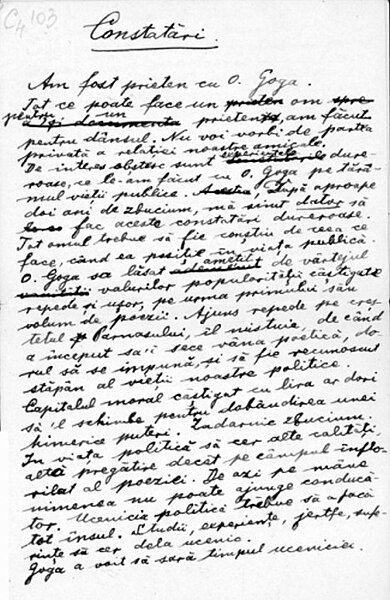 C4 103
Constatări.
Am fost prieten cu O. Goga.
Tot ce poate face un prieten om spre
pentru un
a își documenta prieten, am făcut
pentru dânsul. Nu voi vorbi de partea
privată a relatiei noastre amicale.
De interes obștesc sunt experiențele dure-
roase, ce le-am făcut cu O. Goga pe tără-
mul vieții publice. Acestea, după aproape
doi ani de zbucium, mă simt dator să
fac aceste constatări dureroase.
Tot omul trebue să fie conștiu de ceea ce
face, când ea poziție în viața publică.
O. Goga s'a lăsat amețit de vârtejul
valurilor popularității câștigate
repede și ușor, pe urma primului său
volum de poezii. Ajuns repede pe creș-
tetul Parnasului, îl mistuia, de când
a început sa'i sece vâna poetică, do-
rul să se impună, și să fie recunoscut
stăpân al vieții noastre politice.
Capitalul moral castigat cu lira ar dori
să'l schimbe pentru dobândirea unei
himerice puteri. Zadarnic zbucium.
In viața politică să cer alte calități,
altă pregătire decât pe câmpul înflo-
rilat al poeziei. De azi pe mâne
nimenea nu poate ajunge conducă-
tor. Ucenicia politică trebue să o facă
tot însul. Studii, experiențe, jertfe, sufe-
rințe să cer dela ucenic.
Goga a voit să sară timpul uceniciei.